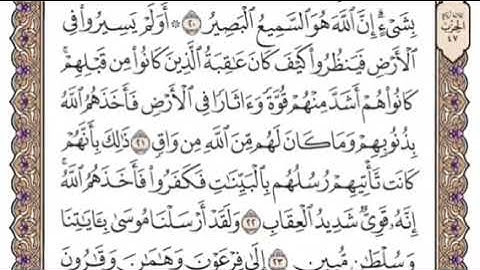 بِشَىۡءٍۗ إِنَّ ٱللَّهَ هُوَ ٱلسَّمِيعُ ٱلۡبَصِيرُ ٢٠ ۞ أَوَلَمۡ يَسِيرُواْ فِى
ٱلۡأَرۡضِ فَيَنظُرُواْ كَيۡفَ كَانَ عَٰقِبَةُ ٱلَّذِينَ كَانُواْ مِن قَبۡلِهِمۡۚ
كَانُواْ هُمۡ أَشَدَّ مِنۡهُمۡ قُوَّةً وَءَاثَارًا فِى ٱلۡأَرۡضِ فَأَخَذَهُمُ ٱللَّهُ
بِذُنُوبِهِمۡ وَمَا كَانَ لَهُم مِّنَ ٱللَّهِ مِن وَاقٍ ٢١ ذَٰلِكَ بِأَنَّهُمۡ
كَانَت تَّأۡتِيهِمۡ رُسُلُهُم بِٱلۡبَيِّنَٰتِ فَكَفَرُواْ فَأَخَذَهُمُ ٱللَّهُۚ
إِنَّهُۥ قَوِىٌّ شَدِيدُ ٱلۡعِقَابِ ٢٢ وَلَقَدۡ أَرۡسَلۡنَا مُوسَىٰ بِـَٔايَٰتِنَا
وَسُلۡطَٰنٍ مُّبِينٍ ٢٣ إِلَىٰ فِرۡعَوۡنَ وَهَٰمَٰنَ وَقَٰرُونَ
الحزب
٤٧